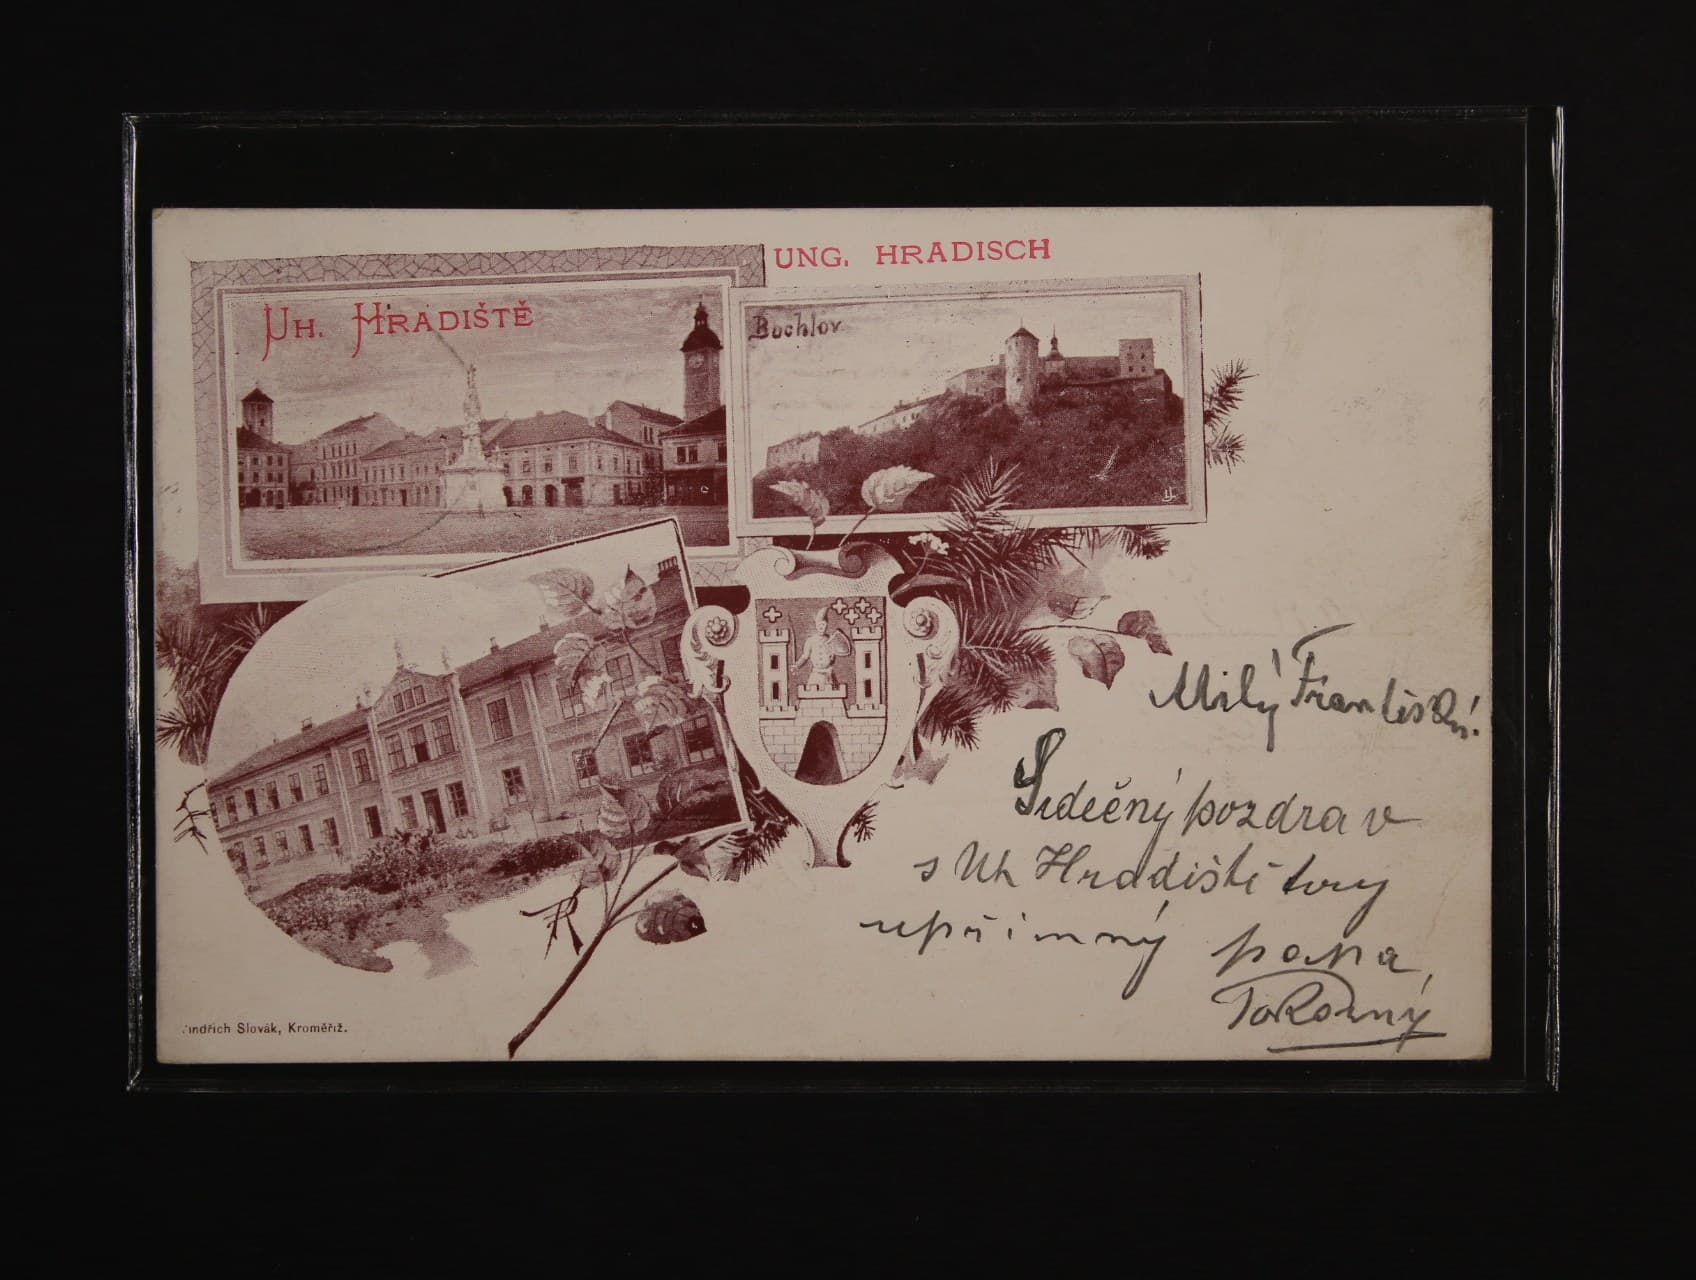 UNG. HRADISCH
UH. HRADIŠTĚ
Buchlov
Milý Františku!
Srdečný pozdrav
s Uh Hradiště tvuj
upřimný papa,
Jindřich Slovák, Kroměříž.